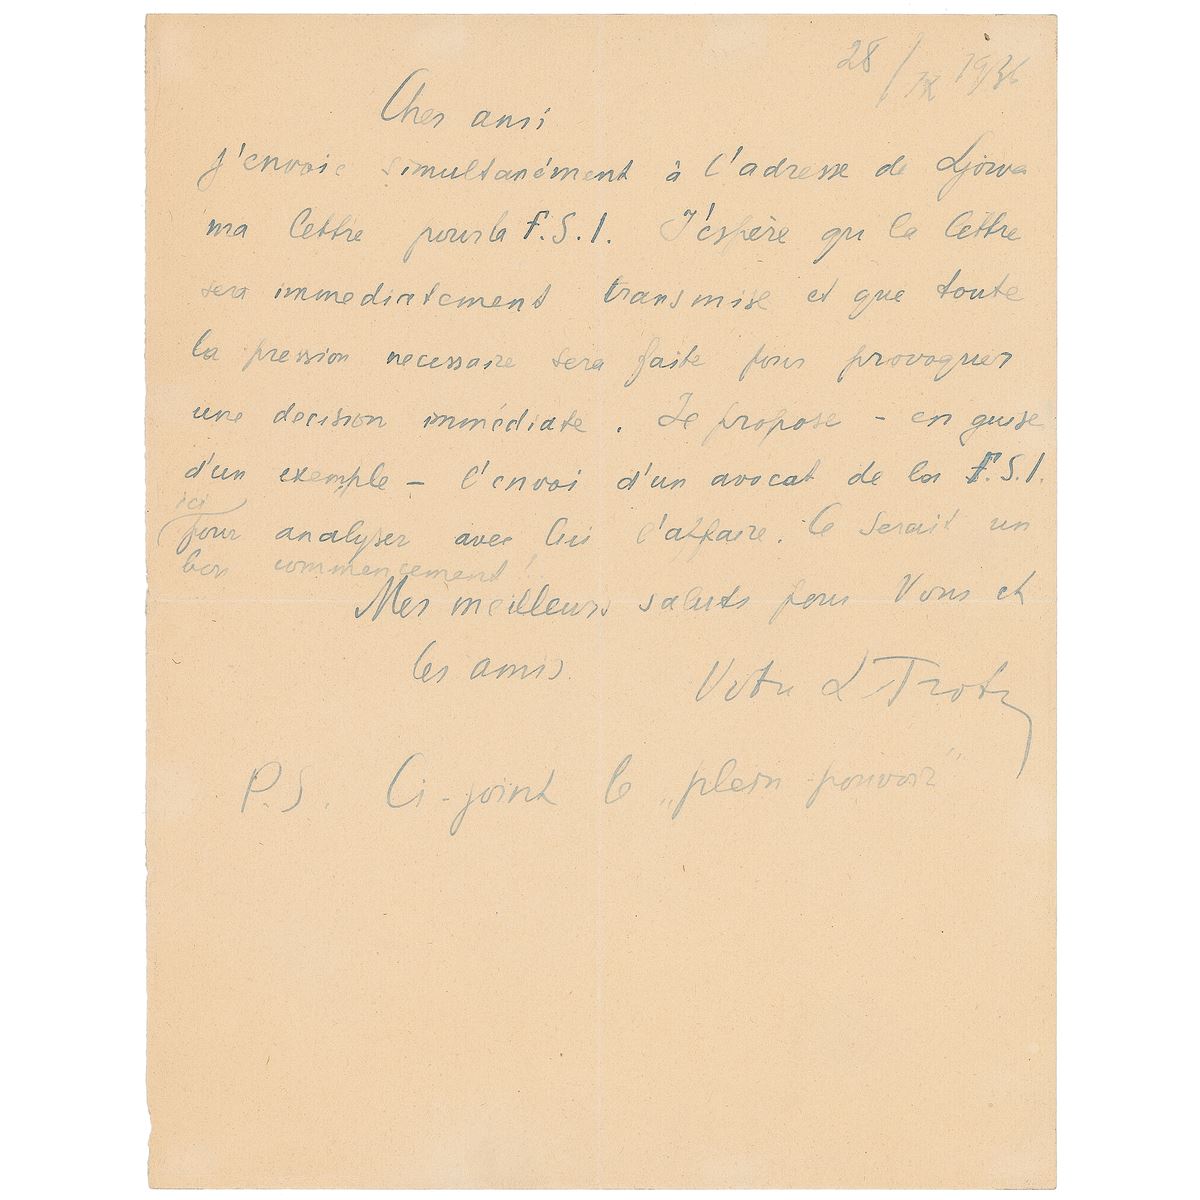 28/IX 1936
Cher ami
J'envoie simultanément à l'adresse de Ljova
ma lettre pour la F.S.I. J'espère qu la lettre
sera immediatement transmise et que toute
la pression necessaire sera faite pour provoquer
une decision immédiate. Je propose – en guise
d'un exemple – l'envoi d'un avocat de la F.S.I.
ici
pour analyser avec lui l'affaire. Ce serait un
bon commencement!
Mes meilleurs saluts pour Vous et
les amis.
Votre L Trotzky
P.S. Ci-joint le „plein-pouvoir"